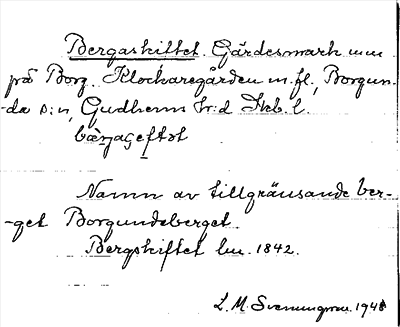 Bergaskiftet. Gärdesmark mm
på Borg. Klockaregården m.fl., Borgun-
da s:n, Gudhems hr:d Skb. l.
Namn av tillgränsande ber-
-get Borgundeberget.
Bergskiftet lm. 1842.
L. M. Svenungsson 1948